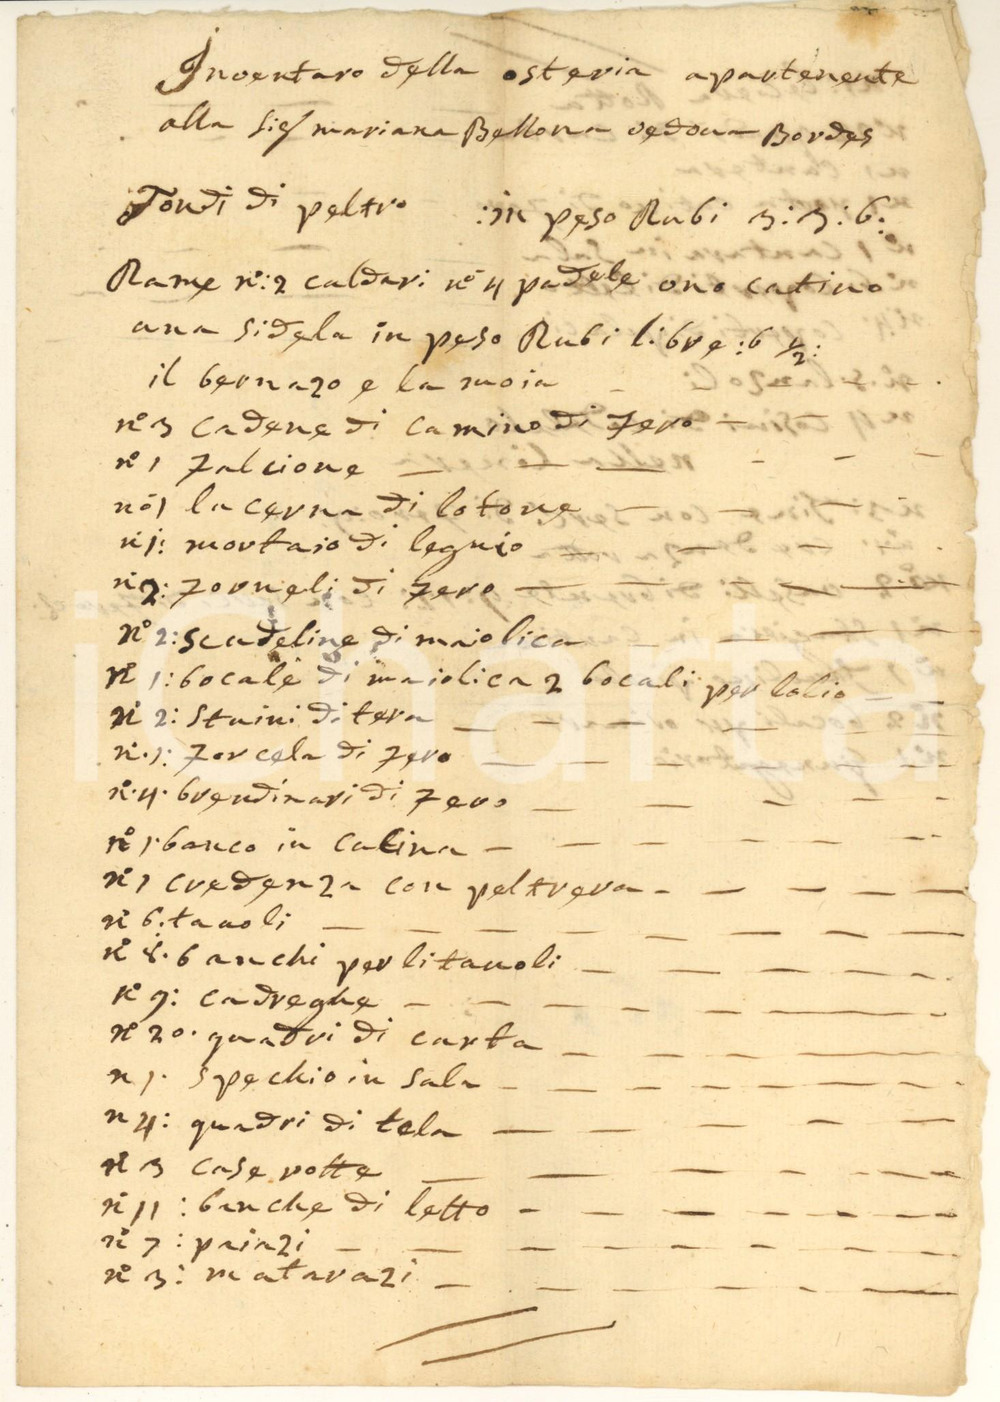 Inventaro della osteria apartenente
alla Sig mariana Bellona vedova Bordes
Tondi di peltro :in peso Rubi 3:3:6:
Rame n:2 caldari n 4 padele ono catino
una sidela in peso Rubi libre:6 1/2:
il bernazo e la moia
n 3 cadene di camino di fero
n 1 falcione
no 1 la cerna di lotone
n 1: mortaio di legnio
n 2: forneli di fero
N 2: scadeline di maiolica
N 1: bocale di maiolica 2 bocali per lolio
N 2: stuini di tera
n 1: forcela di fero
n 4 brendinari di fero
n 1 banco in catina
n 1 credenza con peltrera
n 6: tauoli
n 8. banchi per li tauoli
n 9: cadreghe
n 20. quadri di carta
n 1. spechio in sala
n 4: quadri di tela
n 3 case rotte
n 11: banche di letto
n 7: paiazi
n 3: matarazi